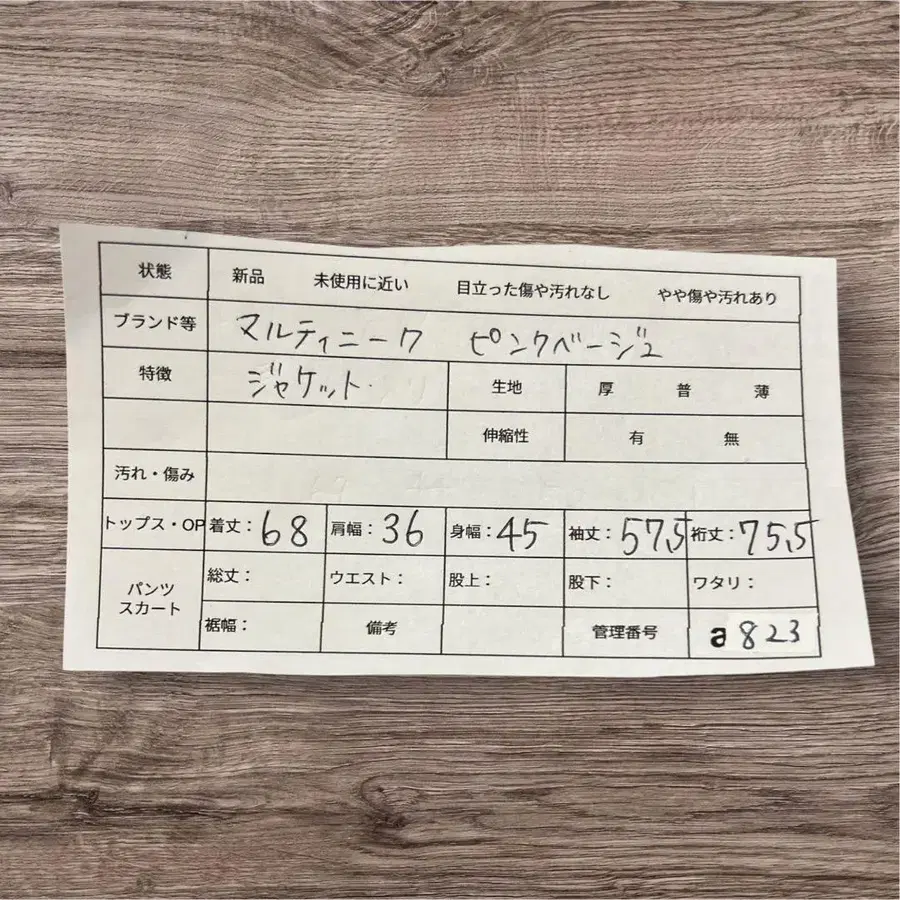 状態 新品 未使用に近い 目立った傷や汚れなし やや傷や汚れあり
ブランド等 マルティニーク ピンクベージュ
特徴 ジャケット 生地 厚 普 薄
伸縮性 有 無
汚れ・傷み
トップス・OP 着丈:68 肩幅:36 身幅:45 袖丈:57,5 裄丈:75,5
パンツ 総丈: ウエスト: 股上: 股下: ワタリ:
スカート
裾幅: 備考 管理番号 a823